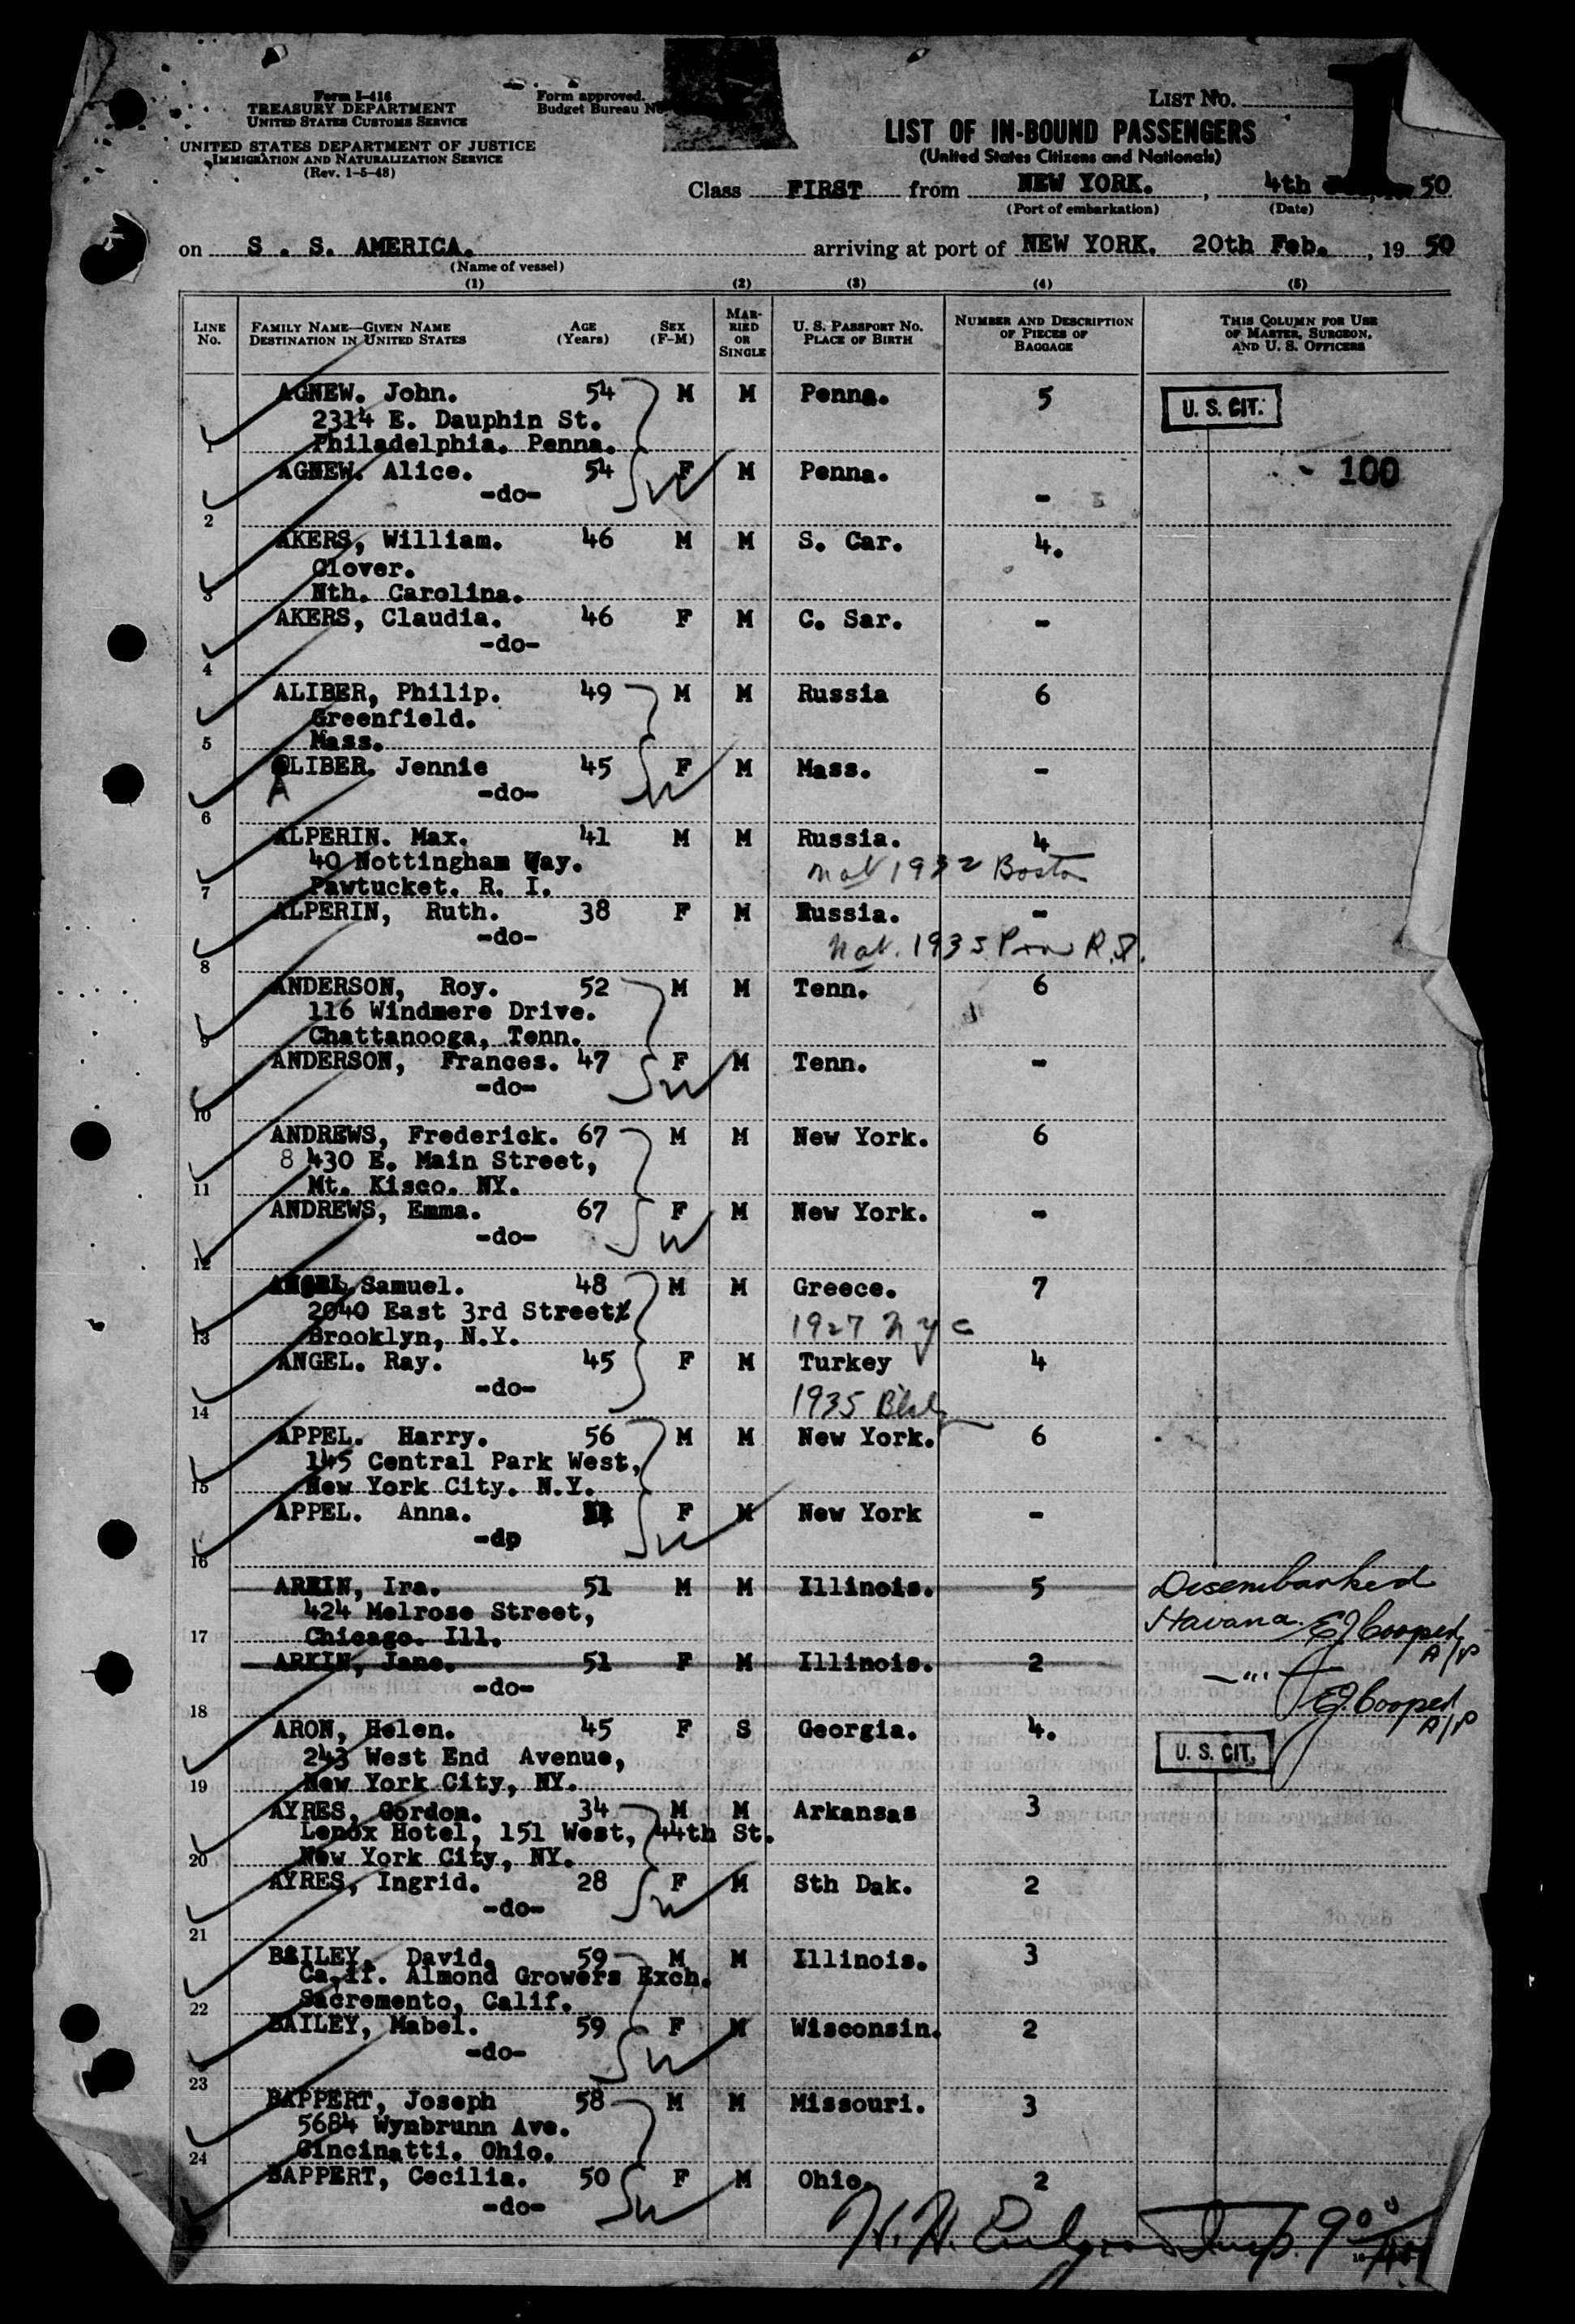 Form I-416
TREASURY DEPARTMENT
UNITED STATES CUSTOMS SERVICE
UNITED STATES DEPARTMENT OF JUSTICE
IMMIGRATION AND NATURALIZATION SERVICE
(Rev. 1-5-48)
Form approved.
Budget Bureau No
LIST NO. 1
LIST OF IN-BOUND PASSENGERS
(United States Citizens and Nationals)
Class FIRST from NEW YORK. , 4th , 50
(Port of embarkation) (Date)
on S . S. AMERICA. arriving at port of NEW YORK. 20th Feb. , 19 50
(Name of vessel)
(1) (2) (3) (4) (5)
LINE No. FAMILY NAME—GIVEN NAME DESTINATION IN UNITED STATES AGE (Years) SEX (F-M) MARRIED OR SINGLE U. S. PASSPORT NO. PLACE OF BIRTH NUMBER AND DESCRIPTION OF PIECES OF BAGGAGE THIS COLUMN FOR USE OF MASTER, SURGEON, AND U. S. OFFICERS
AGNEW. John. 54 M M Penna. 5 U. S. CIT.
2314 E. Dauphin St.
1 Philadelphia. Penna.
AGNEW. Alice. 54 F M Penna. - 100
-do- -
2
AKERS, William. 46 M M S. Car. 4.
Clover.
3 Nth. Carolina.
AKERS, Claudia. 46 F M C. Sar. -
-do-
4
ALIBER, Philip. 49 M M Russia 6
Greenfield.
5 Mass.
ALIBER. Jennie 45 F M Mass. -
-do-
6
ALPERIN. Max. 41 M M Russia. 4
40 Nottingham Way. nat 1932 Boston
7 Pawtucket. R. I.
ALPERIN, Ruth. 38 F M Russia. -
-do- nat. 1935 Prov R.I.
8
ANDERSON, Roy. 52 M M Tenn. 6
116 Windmere Drive.
9 Chattanooga, Tenn.
ANDERSON, Frances. 47 F M Tenn. -
-do-
10
ANDREWS, Frederick. 67 M M New York. 6
8 430 E. Main Street,
11 Mt. Kisco. NY.
ANDREWS, Emma. 67 F M New York. -
-do-
12
ANGEL Samuel. 48 M M Greece. 7
2040 East 3rd Street
13 Brooklyn, N.Y. 1927 N Y C
ANGEL. Ray. 45 F M Turkey 4
-do- 1935 Bklyn
14
APPEL. Harry. 56 M M New York. 6
145 Central Park West,
15 New York City. N.Y.
APPEL. Anna. F M New York -
-dp
16
ARKIN, Ira. 51 M M Illinois. 5 Disembarked
424 Melrose Street, Havana. EJ Cooper
17 Chicago. Ill. A/P
ARKIN, Jane. 51 F M Illinois. 2 -"-
-do- EJ Cooper
18 A/P
ARON, Helen. 45 F S Georgia. 4. U. S. CIT.
243 West End Avenue,
19 New York City, NY.
AYRES, Gordon. 34 M M Arkansas 3
Lenox Hotel, 151 West, 44th St.
20 New York City, NY.
AYRES, Ingrid. 28 F M Sth Dak. 2
-do-
21
BAILEY, David. 59 M M Illinois. 3
Calif. Almond Growers Exch.
22 Sacremento, Calif.
BAILEY, Mabel. 59 F M Wisconsin. 2
-do-
23
BAPPERT, Joseph 58 M M Missouri. 3
5684 Wynbrunn Ave.
24 Cincinatti. Ohio.
BAPPERT, Cecilia. 50 F M Ohio. 2
-do-